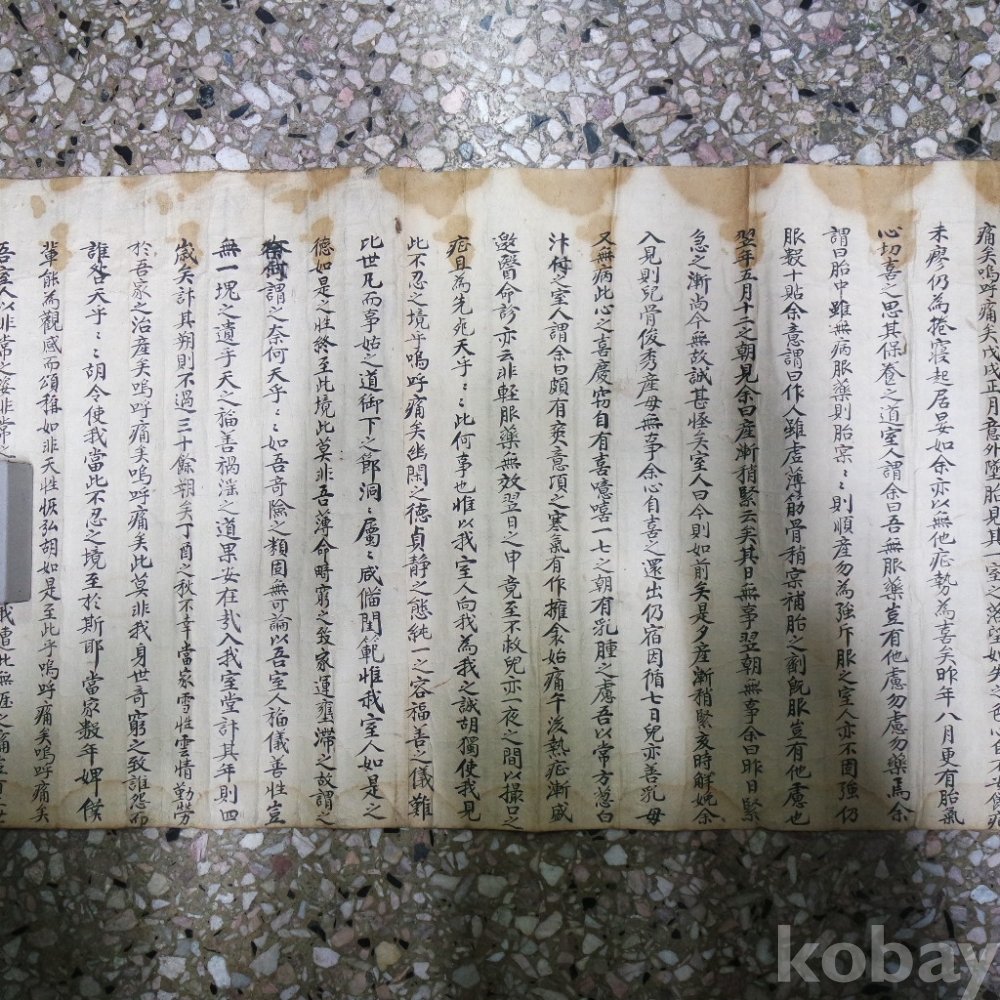 痛矣嗚呼痛矣戊戌正月意外墮胎見其
未瘳仍爲捲寢起居晏如余亦以無他症勢爲喜矣昨年八月更有胎氣
心切喜之思其保養之道室人謂余曰吾無服藥豈有他慮勿慮勿藥焉余
謂曰胎中雖無病服藥則胎宲〻則順產勿爲強斥服之室人亦不固強仍
服數十貼余意謂曰作人雖虛薄筋骨稍宲補胎之劑旣服豈有他慮也
翌年五月十二之朝見余曰產漸稍緊云矣其日無事翌朝無事余曰昨日緊
急之漸尚今無故誠甚怪矣室人曰今則如前矣是夕產漸稍緊亥時解娩余
入見則兒骨俊秀產母無事余心自喜之還出仍宿因循七日兒亦善乳母
又無病此心之喜慶窃自有喜噫嘻一七之朝有乳腫之慮吾以常方葱白
汁付之室人謂余曰頗有爽意項之寒氣有作擁衾始痛午後熱症漸盛
激醫命診亦云非輕服藥無效翌日之申竟至不救兒亦一夜之間以撮口之
症且爲先死天乎〻〻此何事也惟以我室人向我爲我之誠胡獨使我見
此不忍之境乎嗚呼痛矣幽閑之德貞靜之態純一之容福善之儀難
比世凡而事姑之道御下之節洞〻屬〻咸僃閨範惟我室人如是之
德如是之性終至此境此莫非吾薄命畸窮之致家運壅滯之故謂之
謂之奈何天乎〻〻如吾奇險之類固無可論以吾室人福儀善性豈
無一塊之遺乎天之福善禍滛之道果安在哉入我室堂計其年則四
歲矣計其朔則不過三十餘朔矣丁酉之秋不幸當家雪性雲情勤勞
於吾家之治產矣嗚呼痛矣嗚呼痛矣此莫非我身世奇窮之致誰怨而
誰咎天乎〻〻胡令使我當此不忍之境至於斯耶當家數年婢僕
輩能爲觀感而頌稱如非天性恢弘胡如是至此乎嗚呼痛矣嗚呼痛矣
吾室人以非常之姿非常之